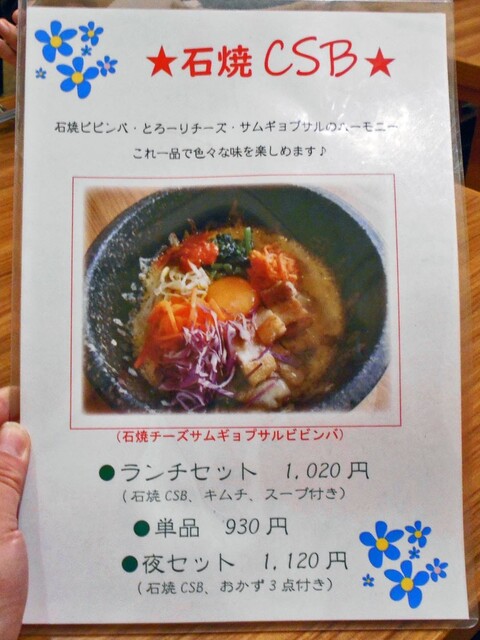 ★石焼CSB★
石焼ビビンバ・とろーりチーズ・サムギョプサルのハーモニー
これ一品で色々な味を楽しめます♪
(石焼チーズサムギョプサルビビンバ)
●ランチセット 1,020円
(石焼CSB、キムチ、スープ付き)
●単品 930円
●夜セット 1,120円
(石焼CSB、おかず3点付き)